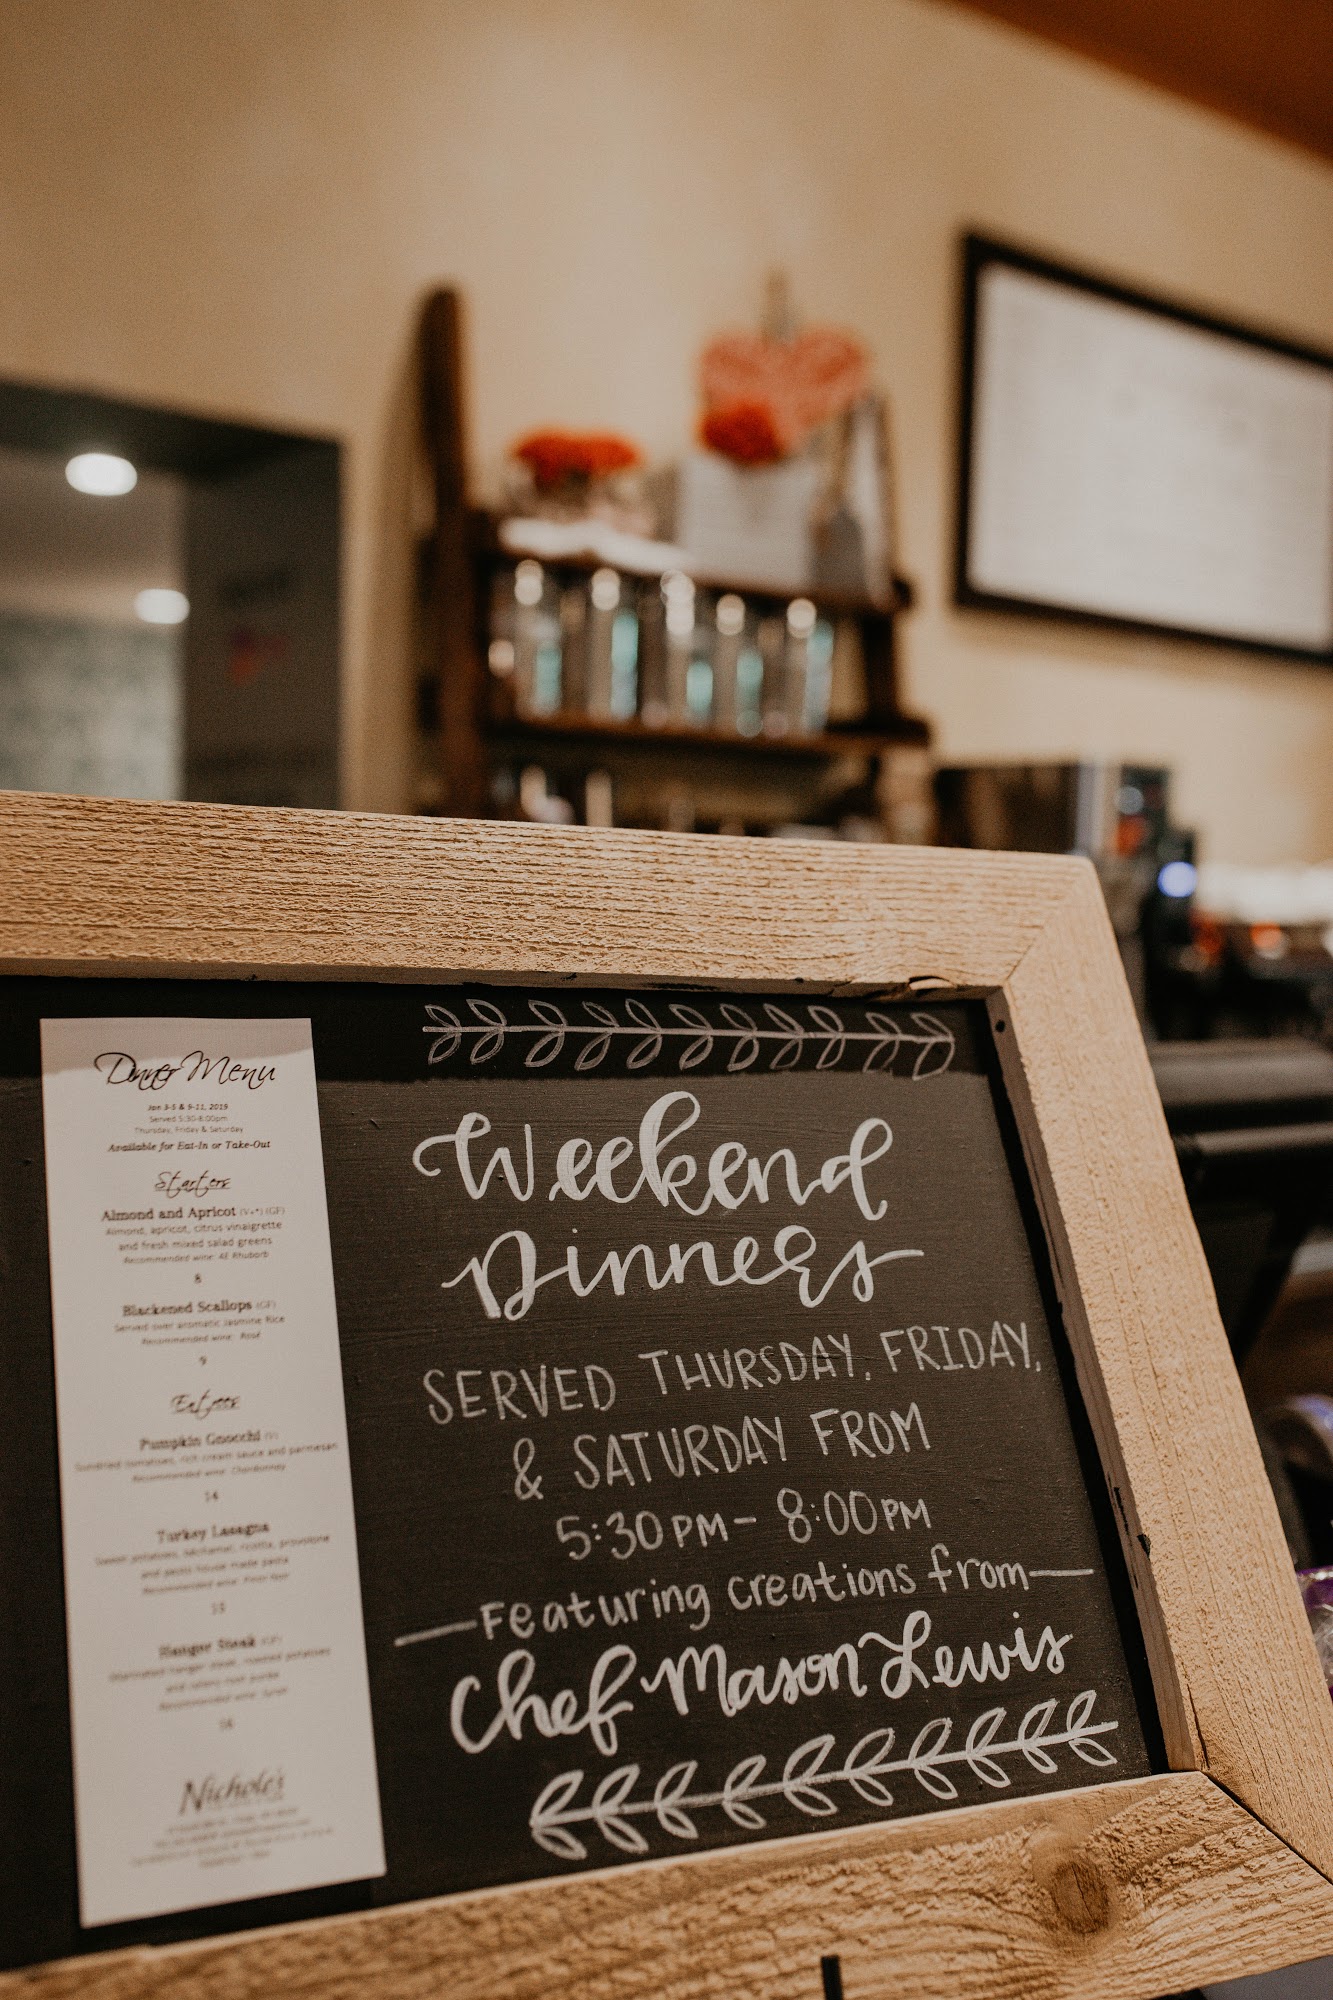 Dinner Menu
Jan 3-5 & 9-11, 2019
Served 5:30-8:00pm
Thursday, Friday & Saturday
Available for Eat-In or Take-Out
Starters
Almond and Apricot (V+*) (GF)
Almond, apricot, citrus vinaigrette
and fresh mixed salad greens
Recommended wine: AE Rhubarb
8
Blackened Scallops (GF)
Served over aromatic Jasmine Rice
Recommended wine: Rosé
9
Entrees
Pumpkin Gnocchi (V)
Sundried tomatoes, rich cream sauce and parmesan
Recommended wine: Chardonnay
14
Turkey Lasagna
Sweet potatoes, béchamel, ricotta, provolone
and pesto house made pasta
Recommended wine: Pinot Noir
Hanger Steak (GF)
Marinated hanger steak, roasted potatoes
and celery root purée
Recommended wine: Syrah
16
Nichole's
Weekend
Dinners
SERVED THURSDAY, FRIDAY,
& SATURDAY FROM
5:30PM - 8:00PM
Featuring creations from
Chef Mason Lewis